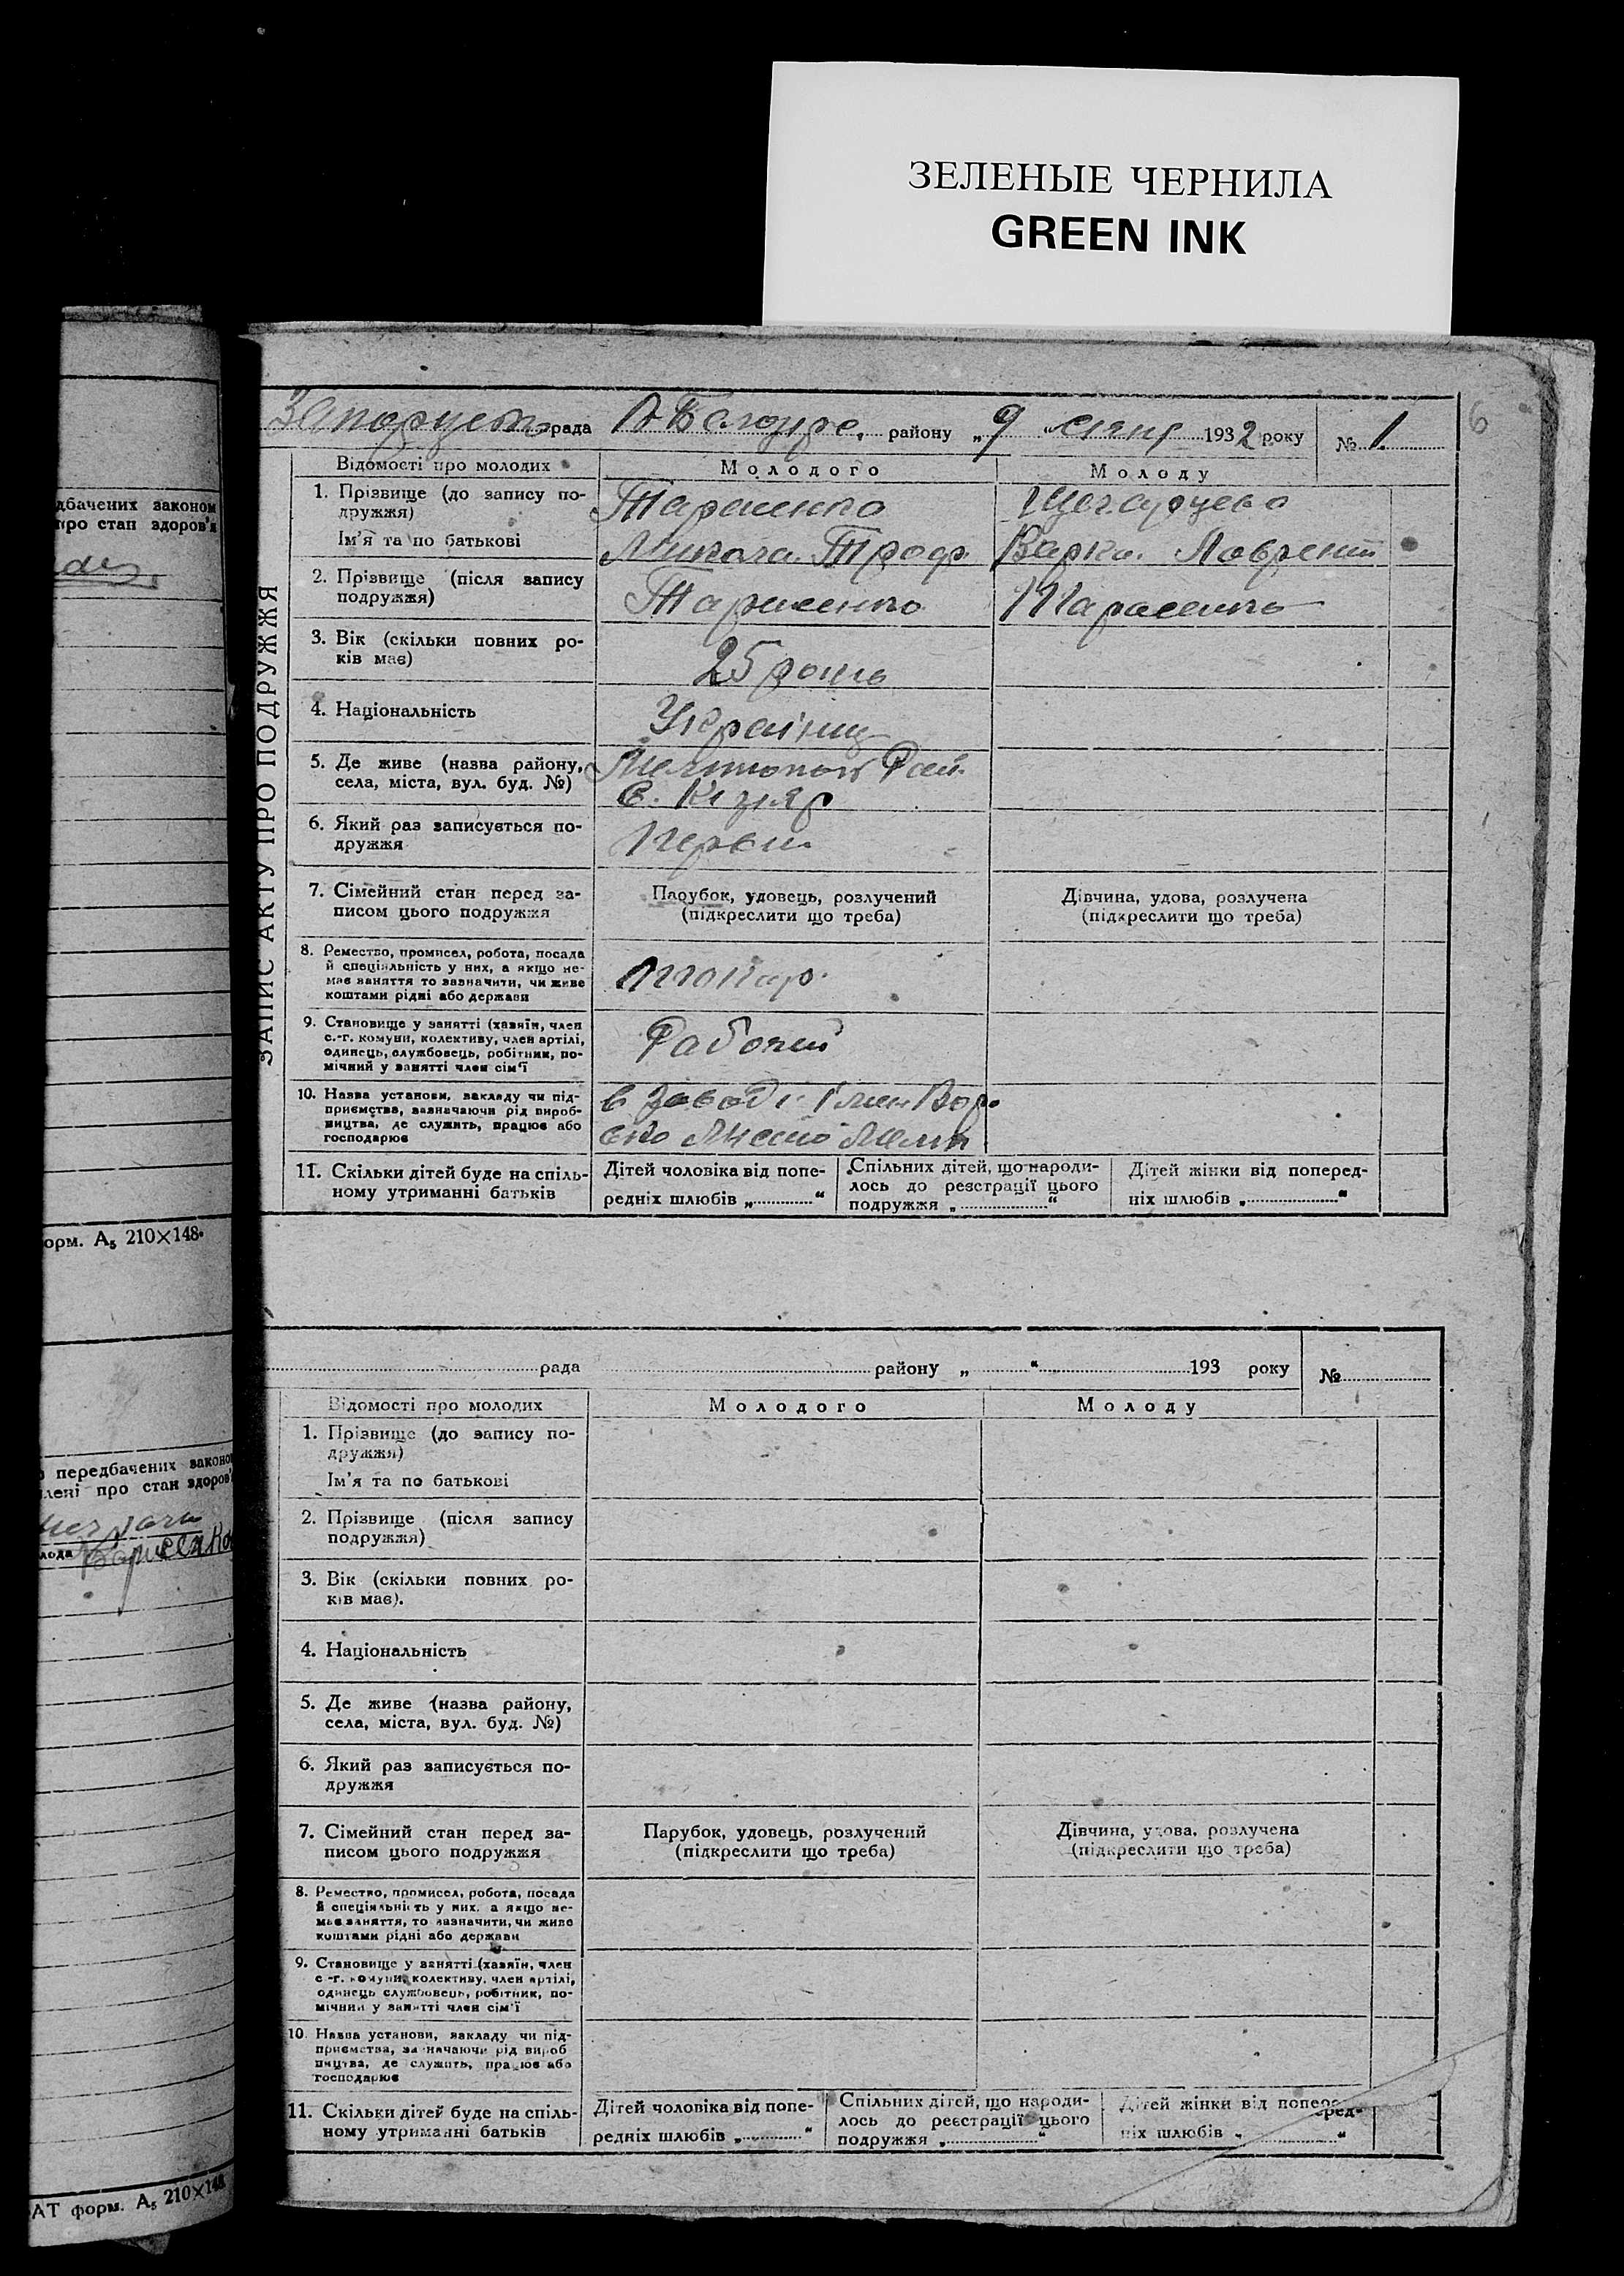 ЗЕЛЕНЫЕ ЧЕРНИЛА
GREEN INK
6
рада району „9 " січня 1932 року № 1.
ЗАПИС АКТУ ПРО ПОДРУЖЖЯ
Відомості про молодих Молодого Молоду
1. Прізвище (до запису по-
дружжя)
Тарасенко
Ім'я та по батькові
Микола Троф. Варка Лаврент
2. Прізвище (після запису
подружжя)
Тарасенко Тарасенко
3. Вік (скільки повних ро-
ків має)
25 років
4. Національність
Українец
5. Де живе (назва району,
села, міста, вул. буд. №)
Мелитопол Рай.
с. Кізіяр
6. Який раз записується по-
дружжя
Первий
7. Сімейний стан перед за-
писом цього подружжя
Парубок, удовець, розлучений
(підкреслити що треба)
Дівчина, удова, розлучена
(підкреслити що треба)
8. Ремество, промисел, робота, посада
й спеціяльність у них, а якщо не-
має заняття то зазначити, чи живе
коштами рідні або держави
токар.
9. Становище у занятті (хазяїн, член
с.-г. комуни, колективу, член артілі,
одинець, службовець, робітник, по-
мічний у занятті член сім'ї
Рабочий
10. Назва установи, закладу чи під-
приємства, зазначаючи рід вироб-
ництва, де служить, працює або
господарює
в заводі
11. Скільки дітей буде на спіль-
ному утриманні батьків
Дітей чоловіка від попе-
редніх шлюбів „ "
Спільних дітей, що народи-
лось до реєстрації цього
подружжя „ "
Дітей жінки від поперед-
ніх шлюбів „ "
рада району „ " 193 року №
Відомості про молодих Молодого Молоду
1. Прізвище (до запису по-
дружжя)
Ім'я та по батькові
2. Прізвище (після запису
подружжя)
3. Вік (скільки повних ро-
ків має).
4. Національність
5. Де живе (назва району,
села, міста, вул. буд. №)
6. Який раз записується по-
дружжя
7. Сімейний стан перед за-
писом цього подружжя
Парубок, удовець, розлучений
(підкреслити що треба)
Дівчина, удова, розлучена
(підкреслити що треба)
8. Ремество, промисел, робота, посада
й спеціяльність у них, а якщо не-
має заняття, то зазначити, чи живе
коштами рідні або держави
9. Становище у занятті (хазяїн, член
с.-г. комуни, колективу, член артілі,
одинець службовець, робітник, по-
мічний у занятті член сім'ї
10. Назва установи, закладу чи під-
приємства, зазначаючи рід вироб
ництва, де служить, працює або
господарює
11. Скільки дітей буде на спіль-
ному утриманні батьків
Дітей чоловіка від попе-
редніх шлюбів „ "
Спільних дітей, що народи-
лось до реєстрації цього
подружжя „ "
Дітей жінки від поперед-
ніх шлюбів „ "
дбачених законом
про стан здоров'я
орм. А5 210×148.
передбачених законо
лені про стан здоров'
лода
АТ форм. А5 210×148